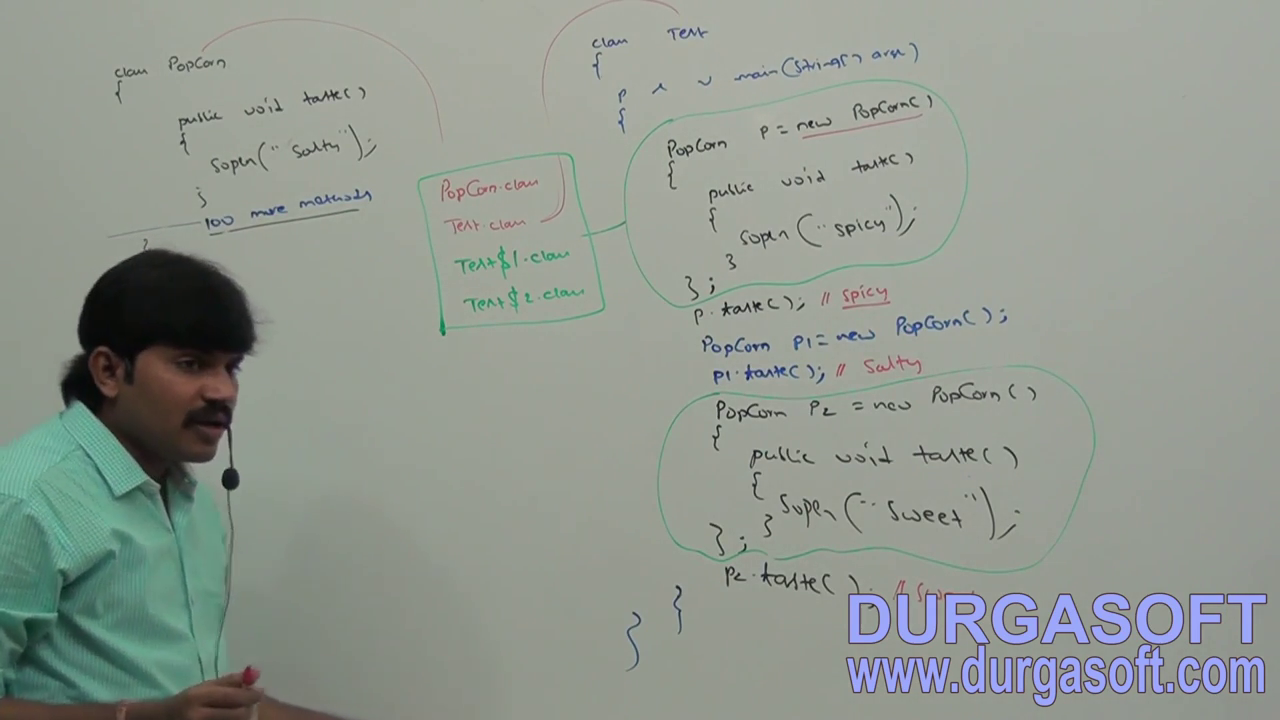 class PopCorn
{
public void taste()
{
sopln("salty");
}
100 more methods
}
PopCorn.class
Test.class
Test$1.class
Test$2.class
class Test
{
p s v main(String[] args)
{
PopCorn p = new PopCorn()
{
public void taste()
{
sopln("spicy");
}
};
p.taste(); // spicy
PopCorn p1 = new PopCorn();
p1.taste(); // salty
PopCorn p2 = new PopCorn()
{
public void taste()
{
sopln("sweet");
}
};
p2.taste(); //
}
}
DURGASOFT
www.durgasoft.com